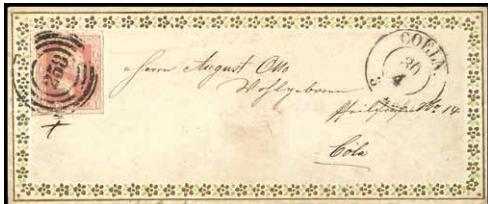 258
COELN
30
4
Herrn August Otto
Wohlgeboren
No 14
Cöln